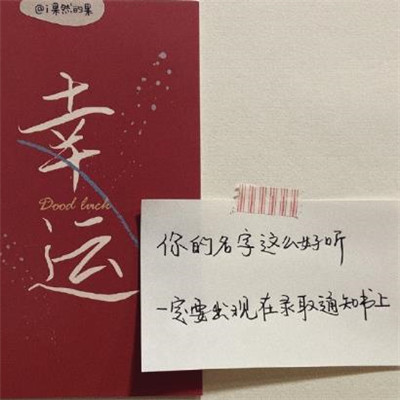 @i果然的果
幸运
Dood luck
你的名字这么好听
一定要出现在录取通知书上